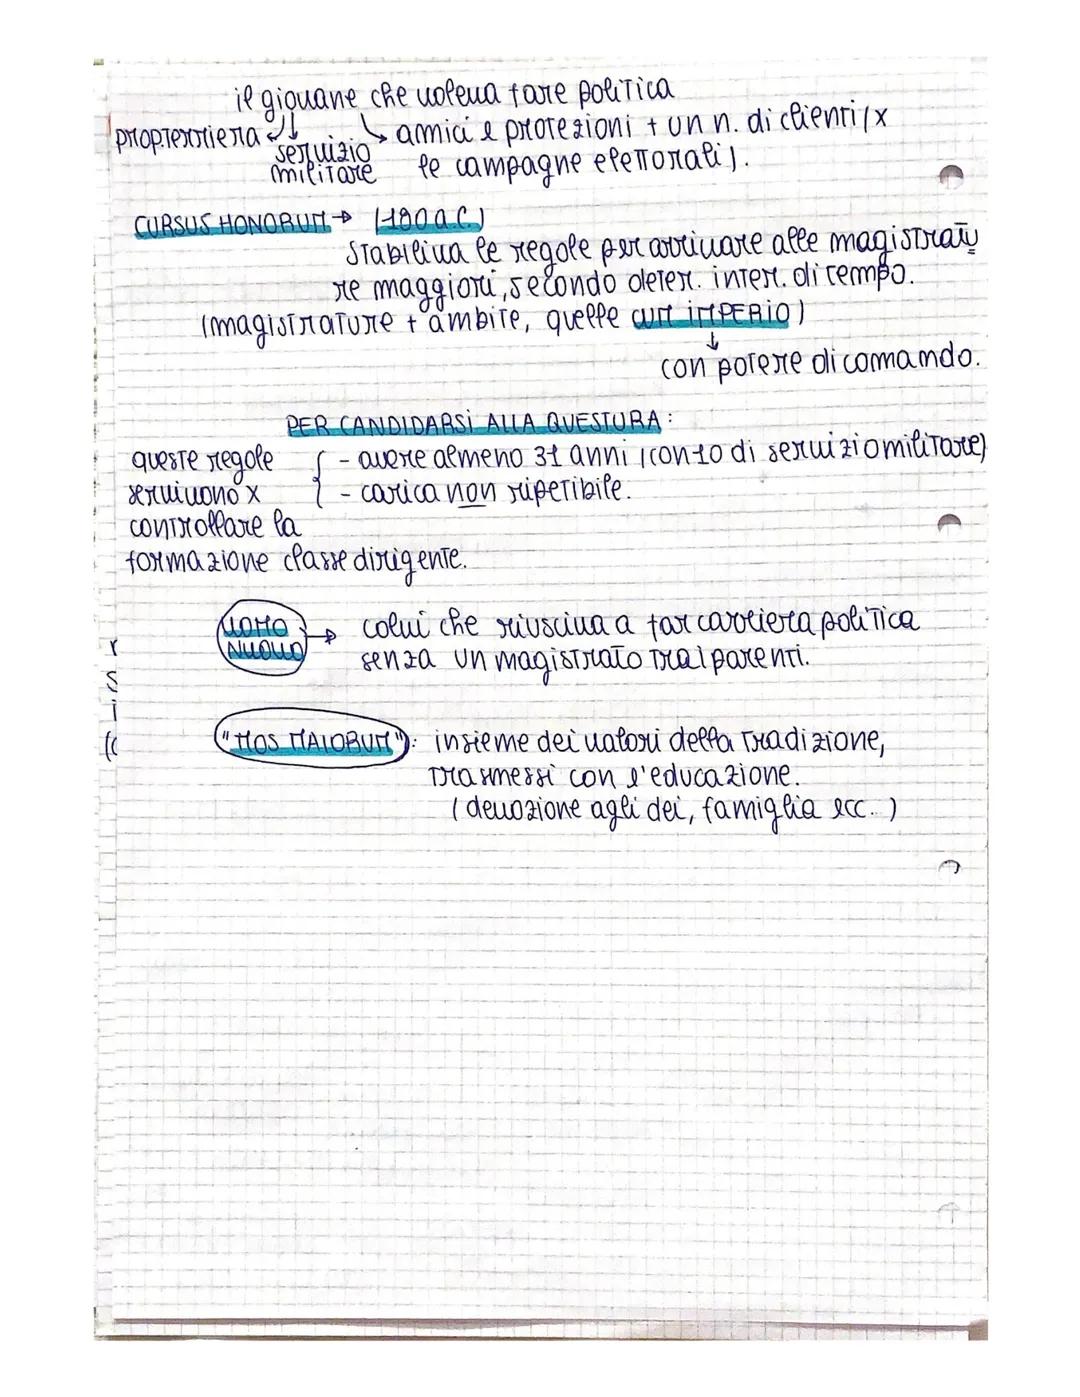 il giovane che voleva fare politica
prop.terriera amici e protezioni + un n. di clienti (x
servizio
militare le campagne elettorali).
CURSUS HONORUM → (180 a.C.)
Stabiliva le regole per arrivare alle magistratu
re maggiori, secondo deter. inter. di tempo.
(magistrature + ambite, quelle CUM IMPERIO)
↓
con potere di comando.
PER CANDIDARSI ALLA QUESTURA:
queste regole { - avere almeno 31 anni (con 10 di servizio militare)
servivono x - carica non ripetibile.
controllare la
formazione classe dirigente.
UOMO → colui che riusciva a far carriera politica
NUOVO senza un magistrato tra i parenti.
"MOS MAIORUM": insieme dei valori della tradizione,
trasmessi con l'educazione.
(devozione agli dei, famiglia ecc..)